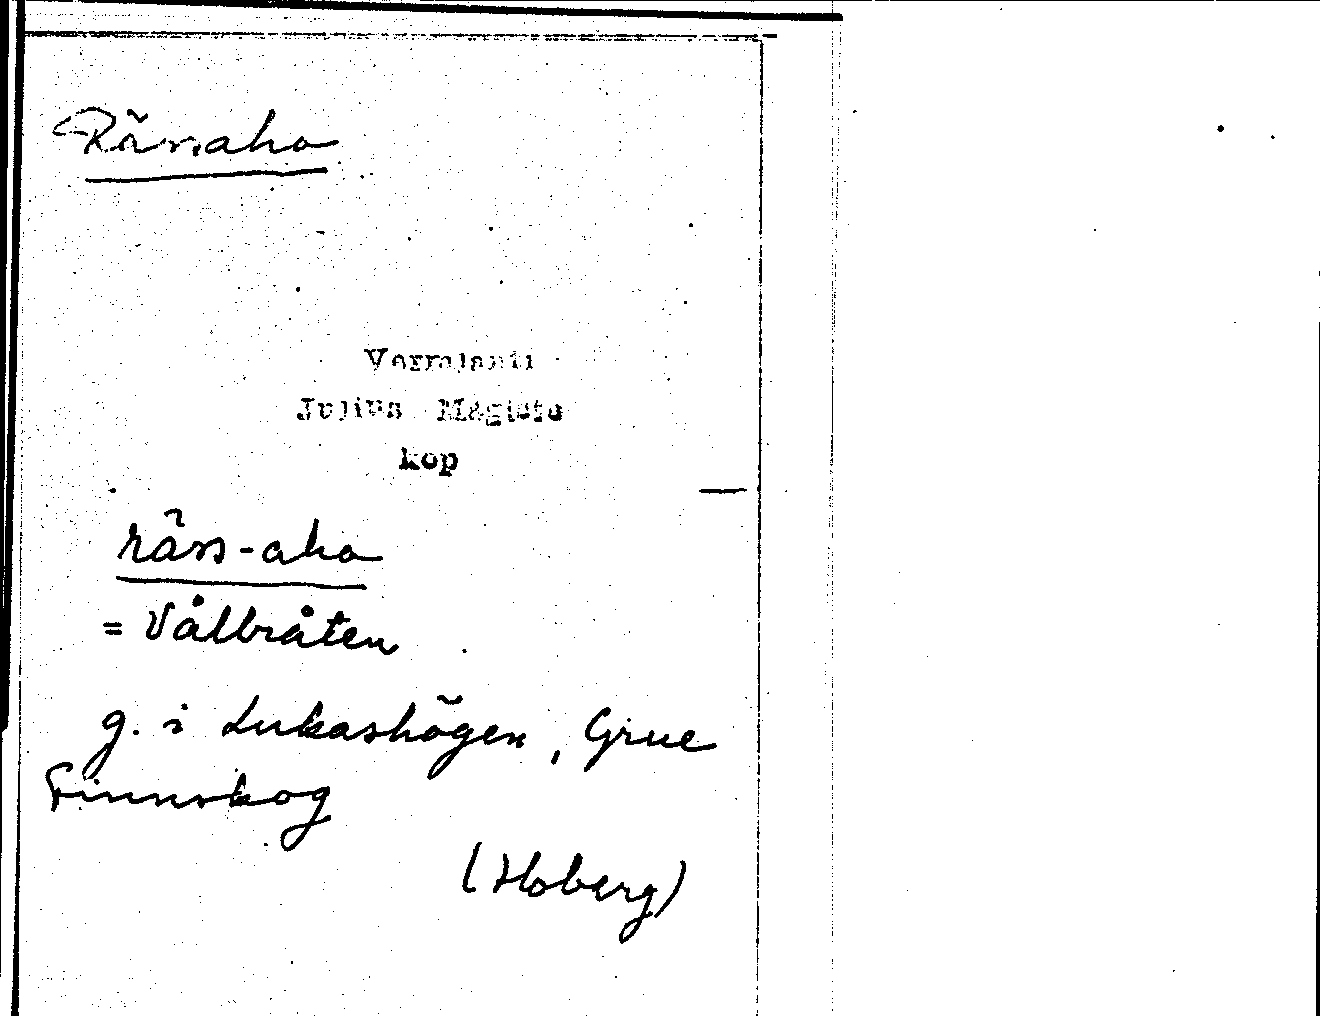 Rãnaho
Vermlanti
Julius Mägiste
kop
rân-aho
= Vålbråten
g. i Lukashögen, Grue
Finnskog
(Hoberg)